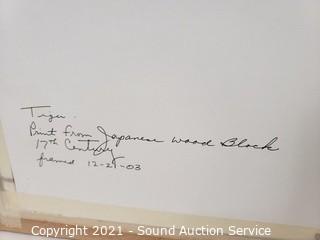 Tiger.
Print from Japanese Wood Block
17th Century
framed 12-29-03
Copyright 2021 - Sound Auction Service